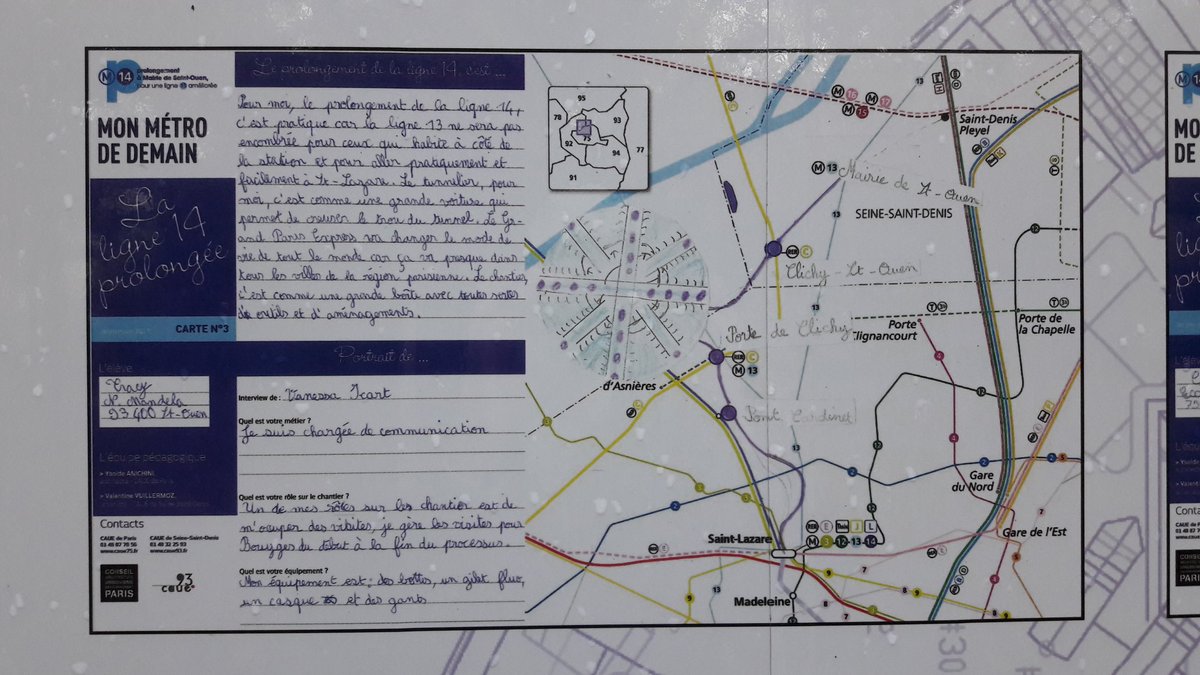 M 14
prolongement
à Mairie de Saint-Ouen,
pour une ligne 13 améliorée
MON MÉTRO
DE DEMAIN
La
ligne 14
prolongée
CARTE N°3
L'élève
Tracy
N. Mandela
93400 St-Ouen
L'équipe pédagogique
> Yanide ANICHINI
> Valentine VUILLERMOZ
Contacts
CAUE de Paris
01 48 87 70 56
www.caue75.fr
CAUE de Seine-Saint-Denis
01 48 32 25 93
www.caue93.fr
CONSEIL
PARIS
93
caue
Le prolongement de la ligne 14, c'est ...
Pour moi, le prolongement de la ligne 14,
c'est pratique car la ligne 13 ne sera pas
encombrée pour ceux qui habite à côté de
la station et pour aller pratiquement et
facilement à St-Lazare. Le tunnelier, pour
moi, c'est comme une grande voiture qui
permet de creuser le trou du tunnel. Le Gr-
and Paris Express va changer le mode de
vie de tout le monde car ça va presque dans
tous les villes de la région parisienne. Le chantier,
c'est comme une grande boîte avec toutes sortes
d'outils et d'aménagements.
Portrait de ...
Interview de : Vanessa Icart
Quel est votre métier ?
Je suis chargée de communication
Quel est votre rôle sur le chantier ?
Un de mes rôles sur les chantier est de
m'occuper des visites, je gère les visites pour
Bouygues du début à la fin du processus.
Quel est votre équipement ?
Mon équipement est : des bottes, un gilet fluo,
un casque et des gants
95
78
93
92
75
94
77
91
M 16 M 17
M 15
Saint-Denis
Pleyel
M 13
Mairie de St-Ouen
SEINE-SAINT-DENIS
13
RER C
Clichy-St-Ouen
12
Porte de Clichy
RER C
M 13
T 3b
T 3b
Porte
lignancourt
Porte de
la Chapelle
d'Asnières
Pont Cardinet
13
4
12
12
4
3
3
3
2
2
2
2
5
Gare
du Nord
Gare de l'Est
Saint-Lazare
RER E J L
M 3 12 13 14
RER E
13
7
7
9
9
3
8
8
9
Madeleine
M 14
MON M
DE DE